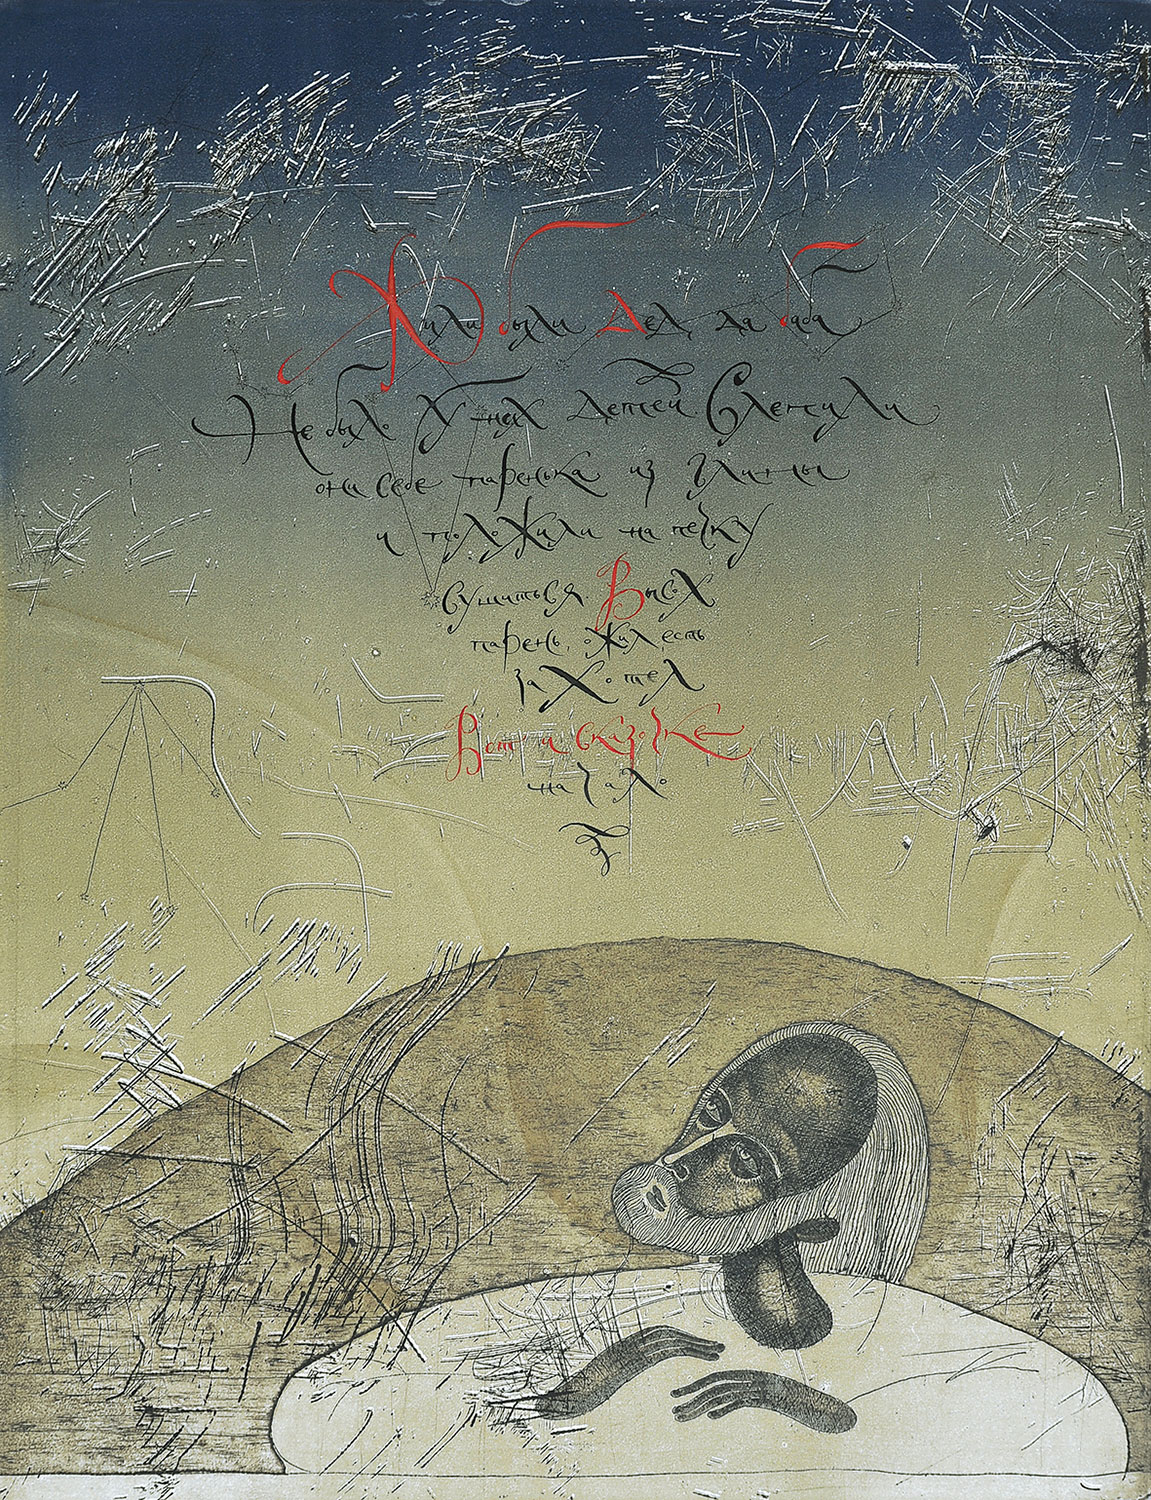 Жили были Дед да баба
Не было У них детей Слепили
они себе паренька из глины
и положили на печку
сушиться Высох
парень, ожил, есть
захотел
Вот и сказочке
начало